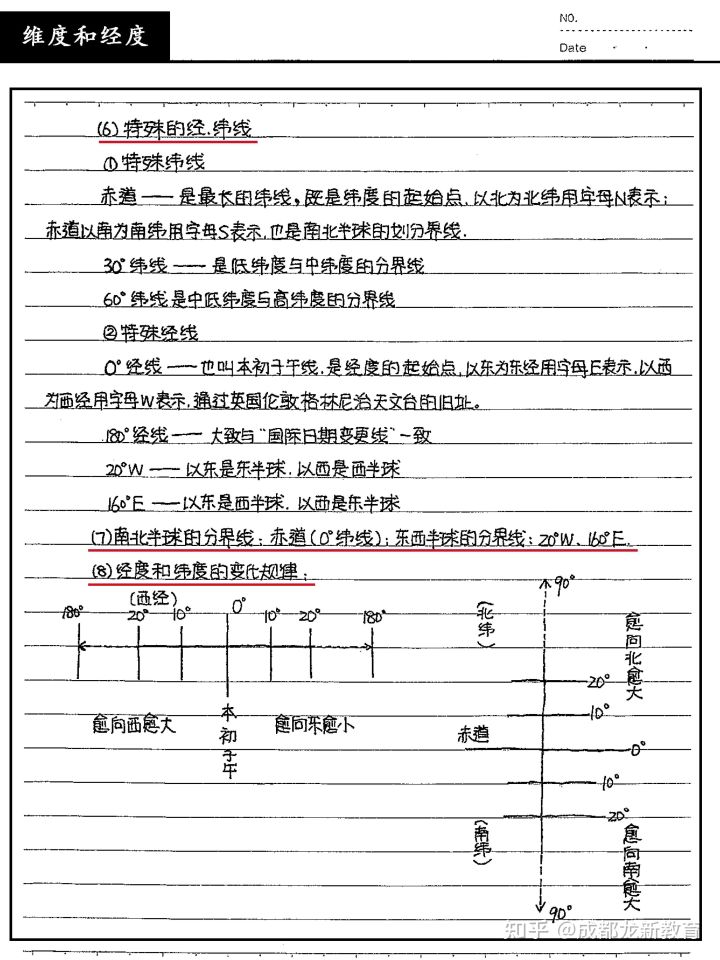 维度和经度
NO.
Date
(6)特殊的经.纬线
①特殊纬线
赤道——是最长的纬线,既是纬度的起始点.以北为北纬用字母N表示;
赤道以南为南纬用字母S表示,也是南北半球的划分界线.
30°纬线——是低纬度与中纬度的分界线
60°纬线是中低纬度与高纬度的分界线
②特殊经线
0°经线——也叫本初子午线.是经度的起始点,以东为东经用字母E表示.以西
为西经用字母W表示,通过英国伦敦格林尼治天文台的旧址。
180°经线——大致与“国际日期变更线”一致
20°W——以东是东半球.以西是西半球
160°E——以东是西半球.以西是东半球
(7)南北半球的分界线:赤道(0°纬线);东西半球的分界线:20°W、160°E.
(8)经度和纬度的变化规律:
(西经)
180° 20° 10° 0° 10° 20° 180°
愈向西愈大
本初子午
愈向东愈小
90°
(北纬)
愈向北愈大
20°
10°
赤道
0°
10°
20°
(南纬)
愈向南愈大
90°
知乎 @成都龙新教育